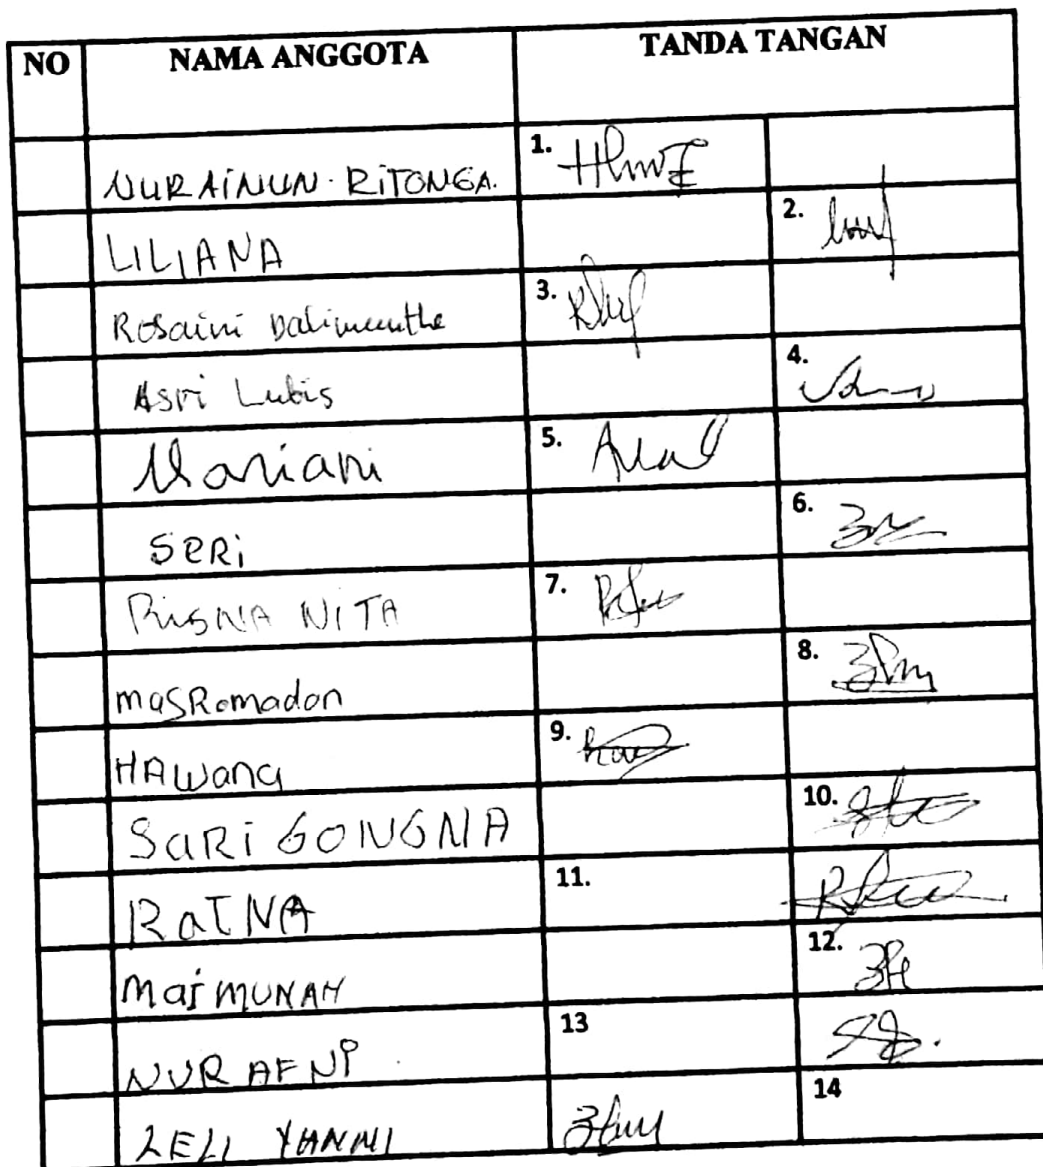 NO NAMA ANGGOTA TANDA TANGAN
NUR AINUN RITONGA. 1.
LILIANA 2.
Rosaini Dalimunthe 3.
Asri Lubis 4.
Mariani 5.
SERi 6.
RISNA NITA 7.
masRomadon 8.
HAwana 9.
SARi GONGNA 10.
RATNA 11.
MaiMUNAH 12.
NUR AFNI 13
LELI YANNI 14